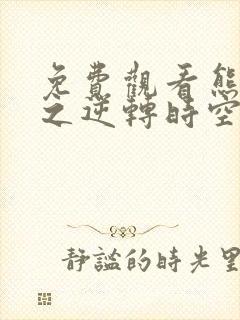 免費觀看熊
之逆轉時空
靜謐的時光里